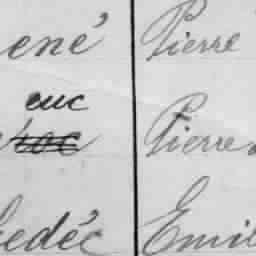 ené Pierre
euc
Pierre
edéc Emil